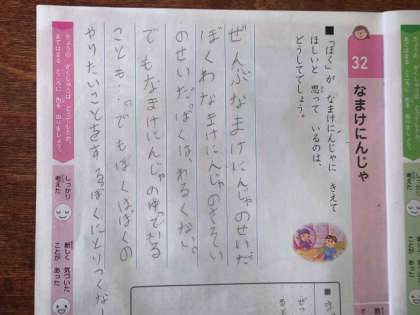 32
なまけにんじゃ
■「ぼく」が なまけにんじゃに きえて
ほしいと 思って いるのは、
どうしてでしょう。
ぜんぶなまけにんじゃのせいだ
ぼくわなまけにんじゃのさそい
のせいだ。ぼくは、わるくない。
でもなまけにんじゃのゆっている
ことも。でもぼくはぼくの
やりたいことをする。ぼくにとりつくな
きょうの がくしゅうは どうでしたか。
あてはまる ところに 色を ぬりましょう。
しっかり
考えた
新しく 気づいた
ことが あった